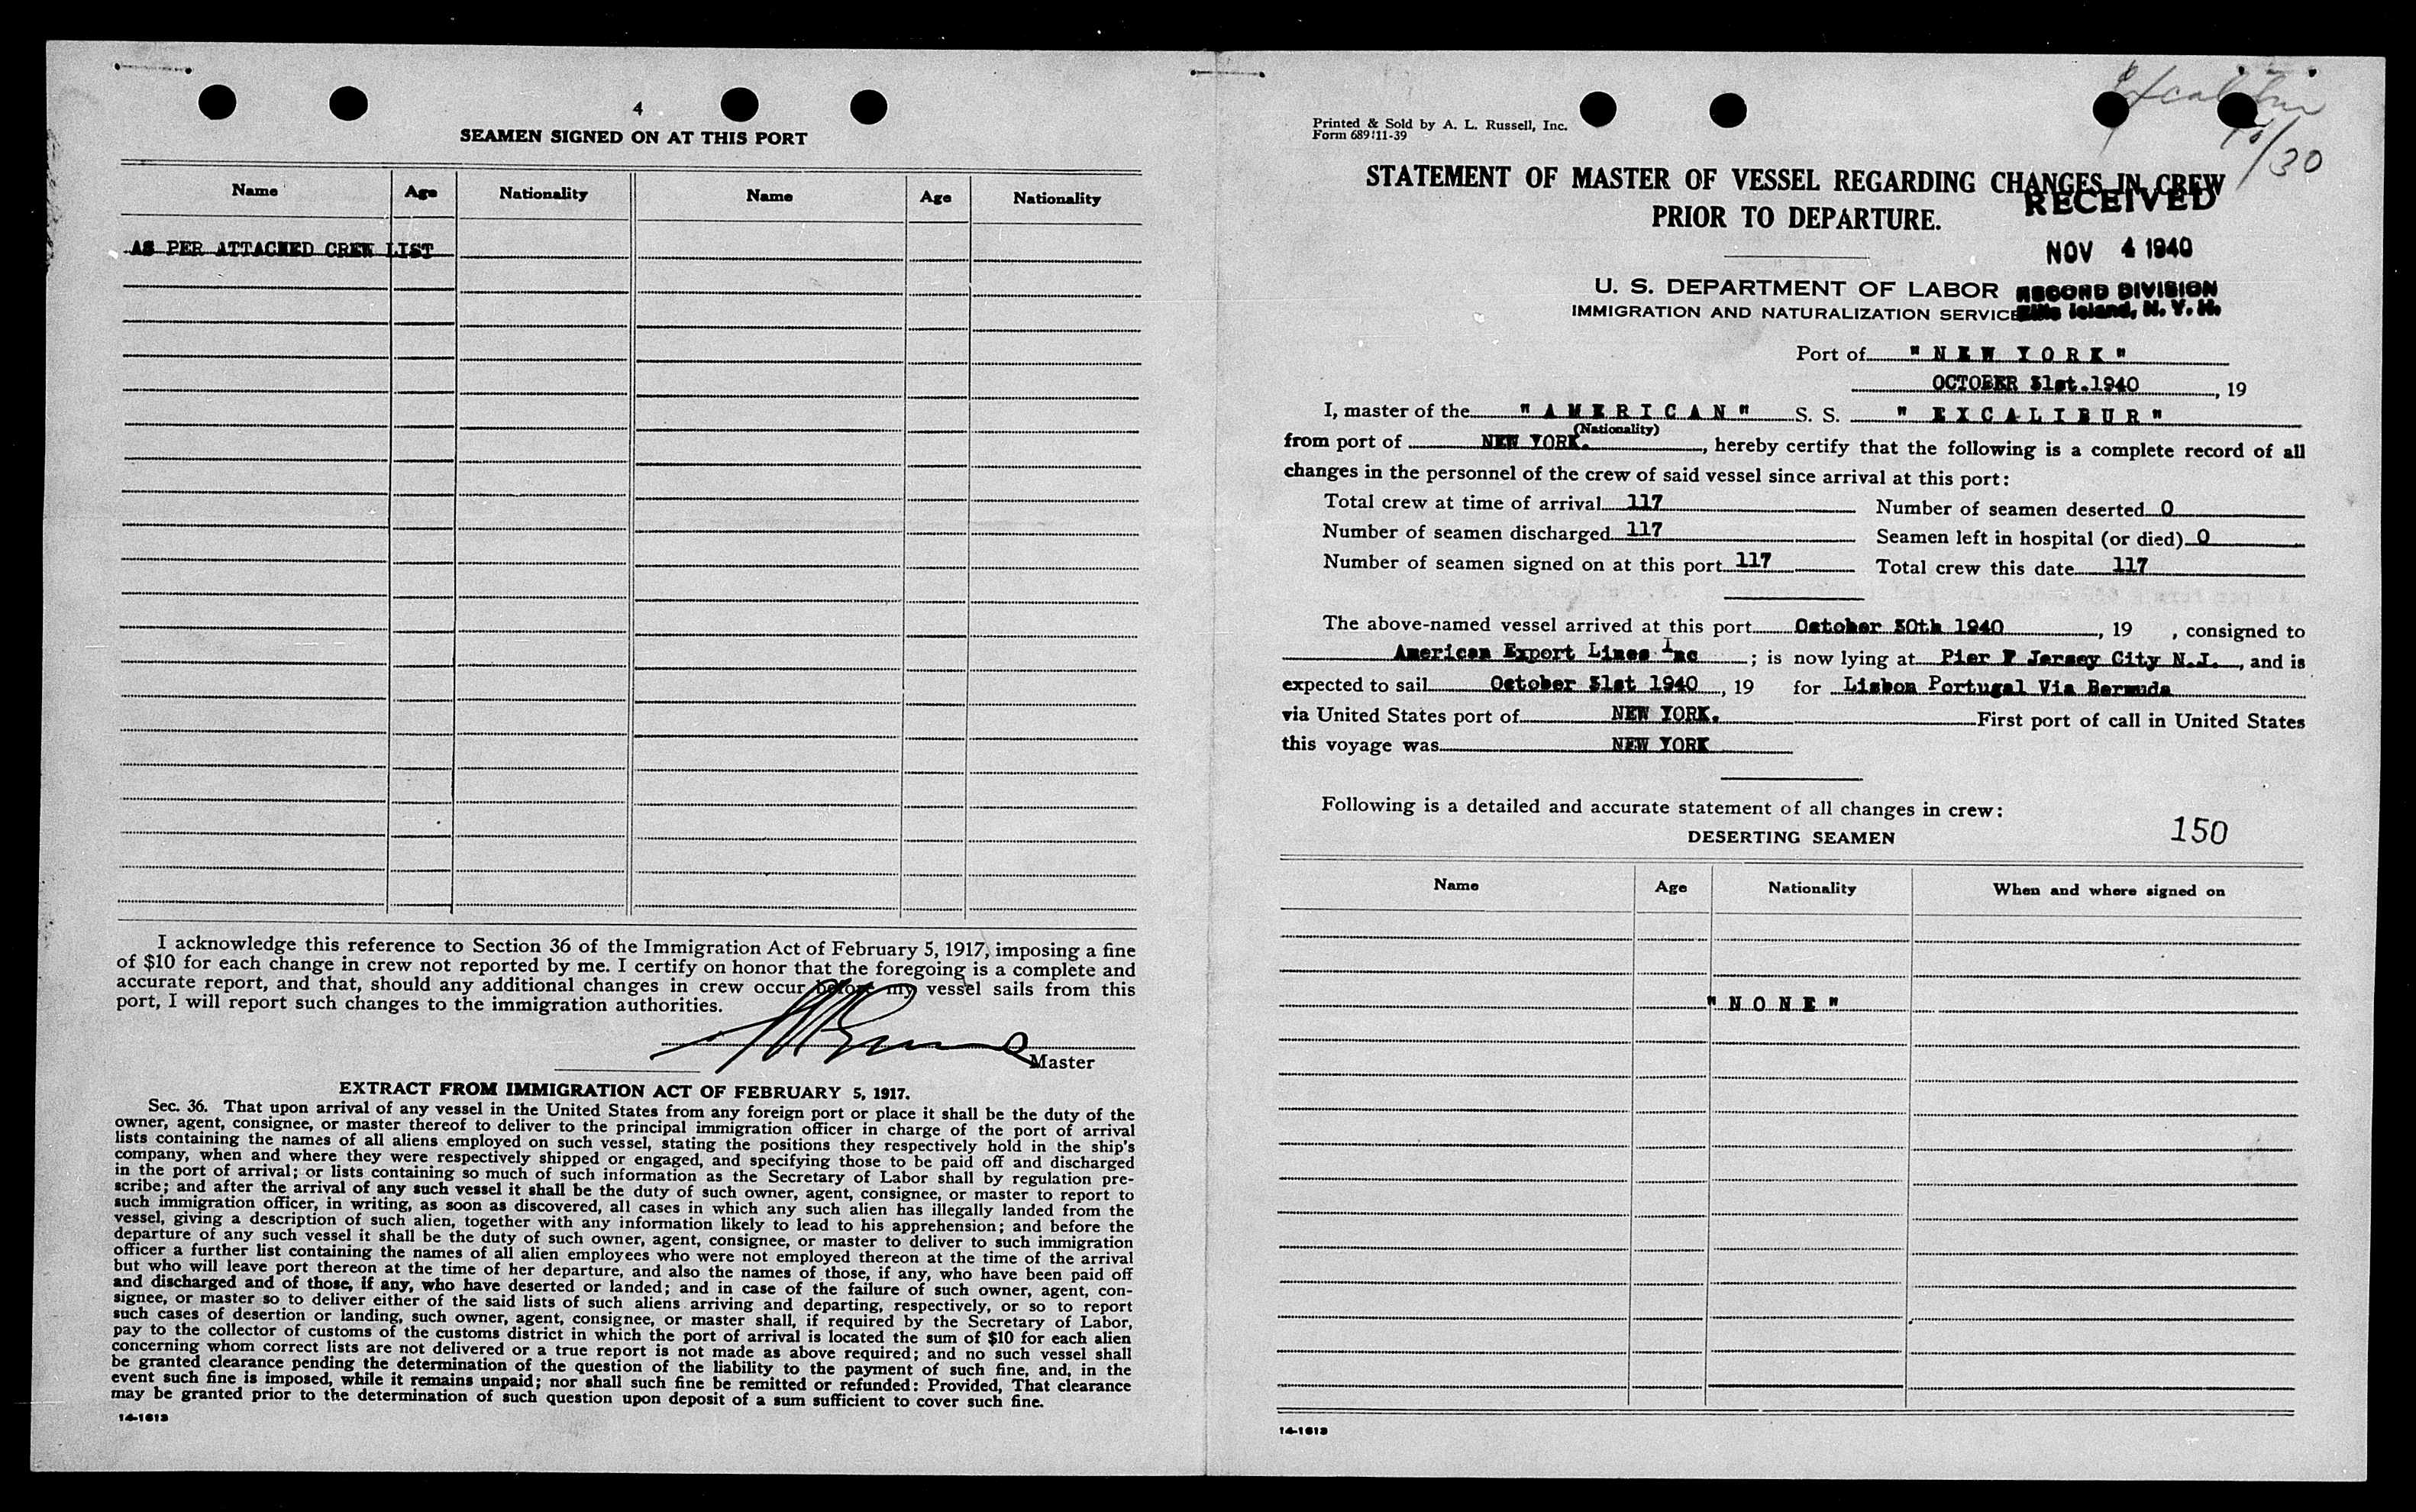 4
SEAMEN SIGNED ON AT THIS PORT
Name Age Nationality Name Age Nationality
AS PER ATTACHED CREW LIST
I acknowledge this reference to Section 36 of the Immigration Act of February 5, 1917, imposing a fine
of $10 for each change in crew not reported by me. I certify on honor that the foregoing is a complete and
accurate report, and that, should any additional changes in crew occur before my vessel sails from this
port, I will report such changes to the immigration authorities.
Master
EXTRACT FROM IMMIGRATION ACT OF FEBRUARY 5, 1917.
Sec. 36. That upon arrival of any vessel in the United States from any foreign port or place it shall be the duty of the
owner, agent, consignee, or master thereof to deliver to the principal immigration officer in charge of the port of arrival
lists containing the names of all aliens employed on such vessel, stating the positions they respectively hold in the ship's
company, when and where they were respectively shipped or engaged, and specifying those to be paid off and discharged
in the port of arrival; or lists containing so much of such information as the Secretary of Labor shall by regulation pre-
scribe; and after the arrival of any such vessel it shall be the duty of such owner, agent, consignee, or master to report to
such immigration officer, in writing, as soon as discovered, all cases in which any such alien has illegally landed from the
vessel, giving a description of such alien, together with any information likely to lead to his apprehension; and before the
departure of any such vessel it shall be the duty of such owner, agent, consignee, or master to deliver to such immigration
officer a further list containing the names of all alien employees who were not employed thereon at the time of the arrival
but who will leave port thereon at the time of her departure, and also the names of those, if any, who have been paid off
and discharged and of those, if any, who have deserted or landed; and in case of the failure of such owner, agent, con-
signee, or master so to deliver either of the said lists of such aliens arriving and departing, respectively, or so to report
such cases of desertion or landing, such owner, agent, consignee, or master shall, if required by the Secretary of Labor,
pay to the collector of customs of the customs district in which the port of arrival is located the sum of $10 for each alien
concerning whom correct lists are not delivered or a true report is not made as above required; and no such vessel shall
be granted clearance pending the determination of the question of the liability to the payment of such fine, and, in the
event such fine is imposed, while it remains unpaid; nor shall such fine be remitted or refunded: Provided, That clearance
may be granted prior to the determination of such question upon deposit of a sum sufficient to cover such fine.
14-1613
Excalibur
10/30
Printed & Sold by A. L. Russell, Inc.
Form 689 11-39
STATEMENT OF MASTER OF VESSEL REGARDING CHANGES IN CREW
PRIOR TO DEPARTURE.
RECEIVED
NOV 4 1940
RECORD DIVISION
Ellis Island, N. Y. H.
U. S. DEPARTMENT OF LABOR
IMMIGRATION AND NATURALIZATION SERVICE
Port of "NEW YORK"
OCTOBER 31st.1940, 19
I, master of the "AMERICAN" S. S. "EXCALIBUR"
(Nationality)
from port of NEW YORK., hereby certify that the following is a complete record of all
changes in the personnel of the crew of said vessel since arrival at this port:
Total crew at time of arrival 117 Number of seamen deserted 0
Number of seamen discharged 117 Seamen left in hospital (or died) 0
Number of seamen signed on at this port 117 Total crew this date 117
The above-named vessel arrived at this port October 30th 1940, 19 , consigned to
American Export Lines Inc; is now lying at Pier F Jersey City N.J., and is
expected to sail October 31st 1940, 19 for Lisbon Portugal Via Bermuda
via United States port of NEW YORK. First port of call in United States
this voyage was NEW YORK
Following is a detailed and accurate statement of all changes in crew:
DESERTING SEAMEN
150
Name Age Nationality When and where signed on
"NONE"
14-1613